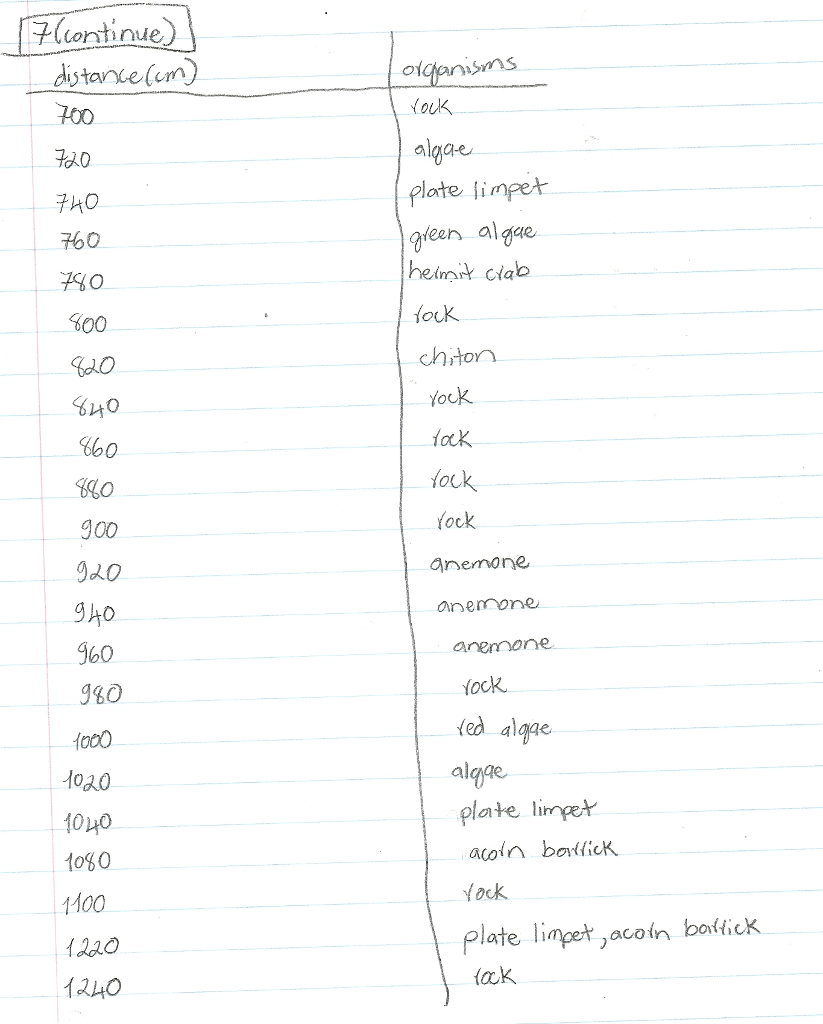 7(continue)
distance(cm) organisms
700 rock
720 algae
740 plate limpet
760 green algae
780 hermit crab
800 rock
820 chiton
840 rock
860 rock
880 rock
900 rock
920 anemone
940 anemone
960 anemone
980 rock
1000 red algae
1020 algae
1040 plate limpet
1080 acorn barrick
1100 rock
1220 plate limpet, acorn barrick
1240 rock